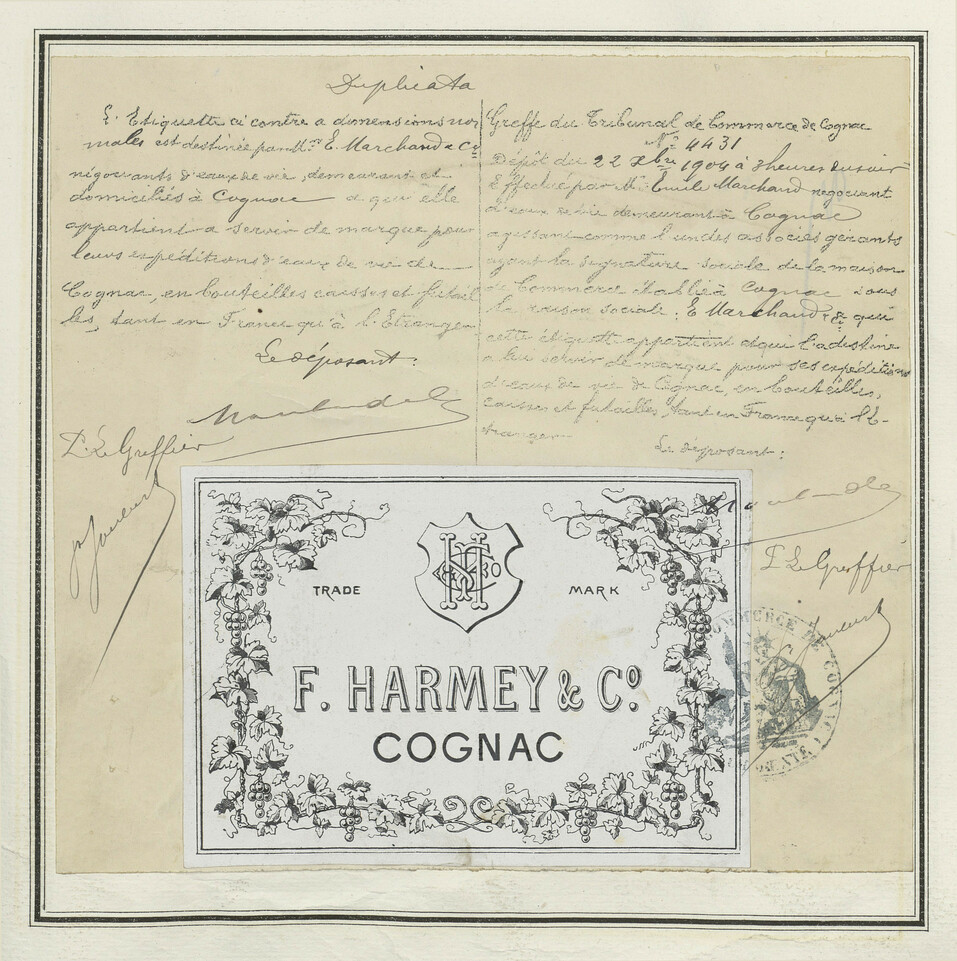 Duplicata
L'Etiquette ci contre a dimensions nor
males est destinée par MM. E. Marchand & Cie
négociants d'eaux de vie, demeurant et
domiciliés à Cognac a qui elle
appartient a servir de marque pour
leurs expéditions d'eaux de vie de
Cognac, en bouteilles caisses et futail
les, tant en France qu'à l'Etranger
Le déposant:
Le Greffier
Greffe du Tribunal de Commerce de Cognac
No 4431
Dépôt du 22 Xbre 1904 à 3 heures du soir
Effectué par Mr Emile Marchand négociant
d'eaux de vie demeurant à Cognac
agissant comme l'un des associés gérants
ayant la signature sociale de la maison
de Commerce établie à Cognac sous
la raison sociale: E Marchand & que
cette étiquette appartient et qui l'a destine
a lui servir de marque pour ses expéditions
d'eaux de vie de Cognac, en bouteilles,
caisses et futailles, tant en France qu'à l'E-
tranger
Le déposant:
Le Greffier
TRADE MARK
F. HARMEY & Co.
COGNAC
COMMERCE DE COGNAC